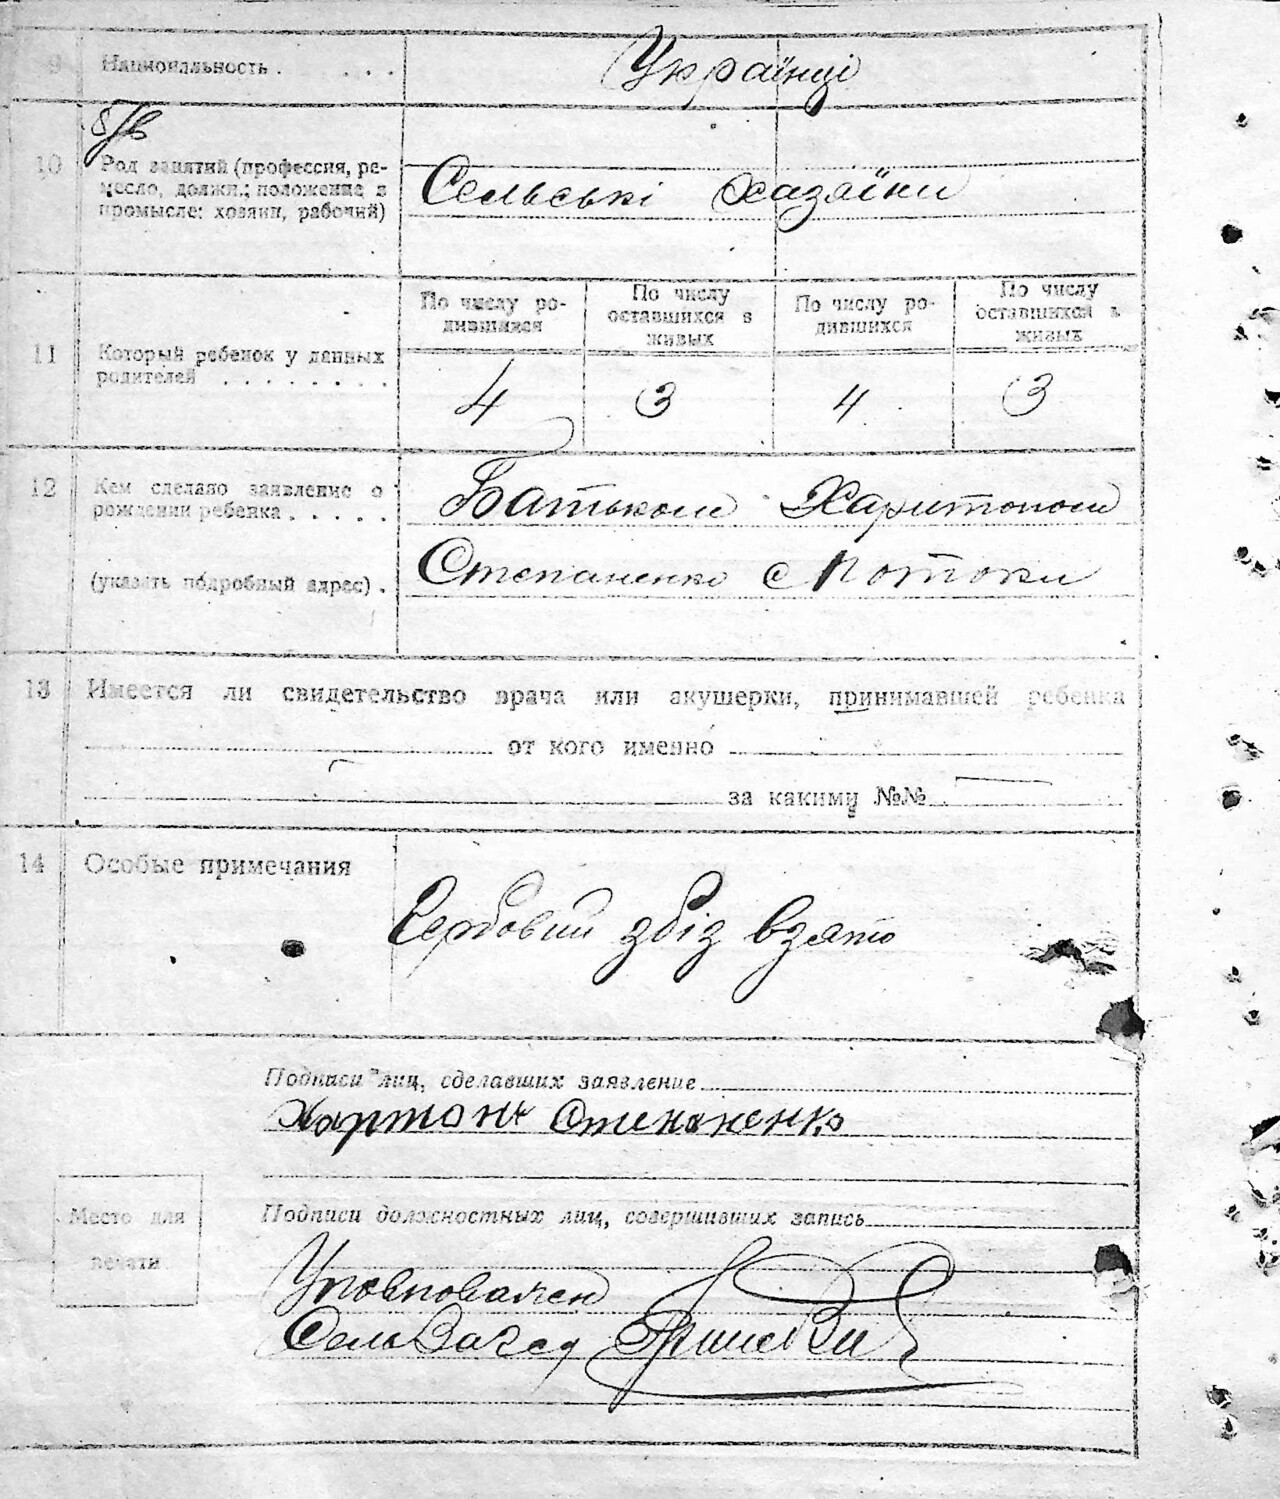 9 Национальность . . . . Українці
10 Род занятий (профессия, ре-
месло, должн.; положение в
промысле: хозяин, рабочий)
Сельські хазяїни
11 Который ребенок у данных
родителей . . . . . . . .
По числу ро-
дившихся
По числу
оставшихся в
живых
По числу ро-
дившихся
По числу
оставшихся в
живых
4 3 4 3
12 Кем сделано заявление о
рождении ребенка . . . . .
(указать подробный адрес) .
Батьком Харитоном
Степаненко с Потоки
13 Имеется ли свидетельство врача или акушерки, принимавшей ребенка
от кого именно
за каким №№
14 Особые примечания
Гербовий збіз взято
Подписи лиц, сделавших заявление
Хартон Степаненко
Место для
печати
Подписи должностных лиц, совершивших запись
Уповноважен